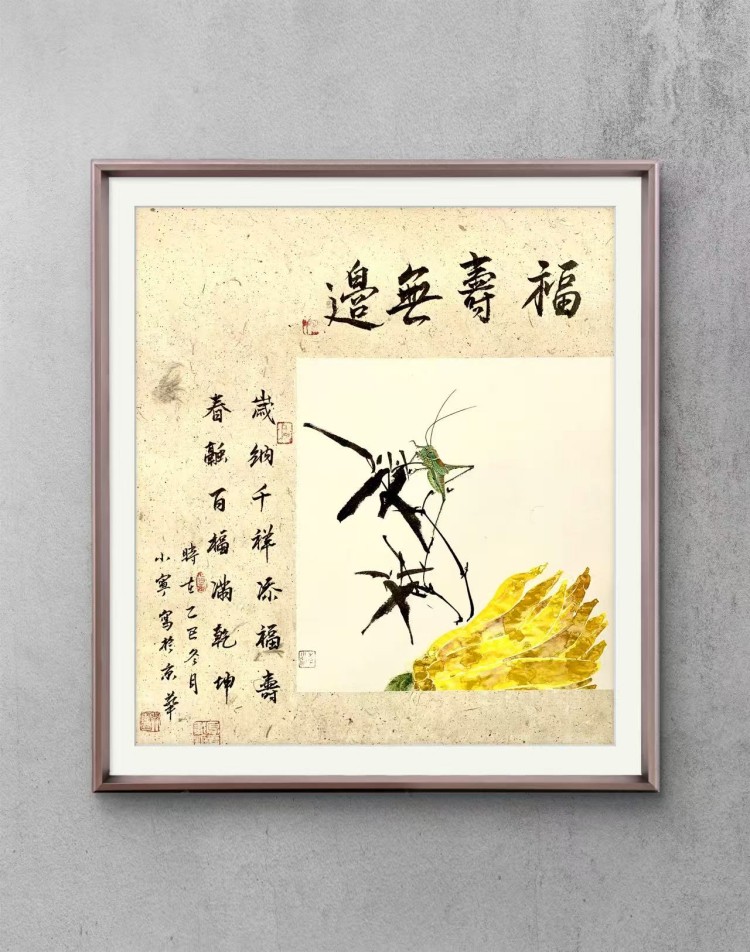 福壽無邊
歲納千祥添福壽
春融百福滿乾坤
時在乙巳冬月
小寧寫於京華